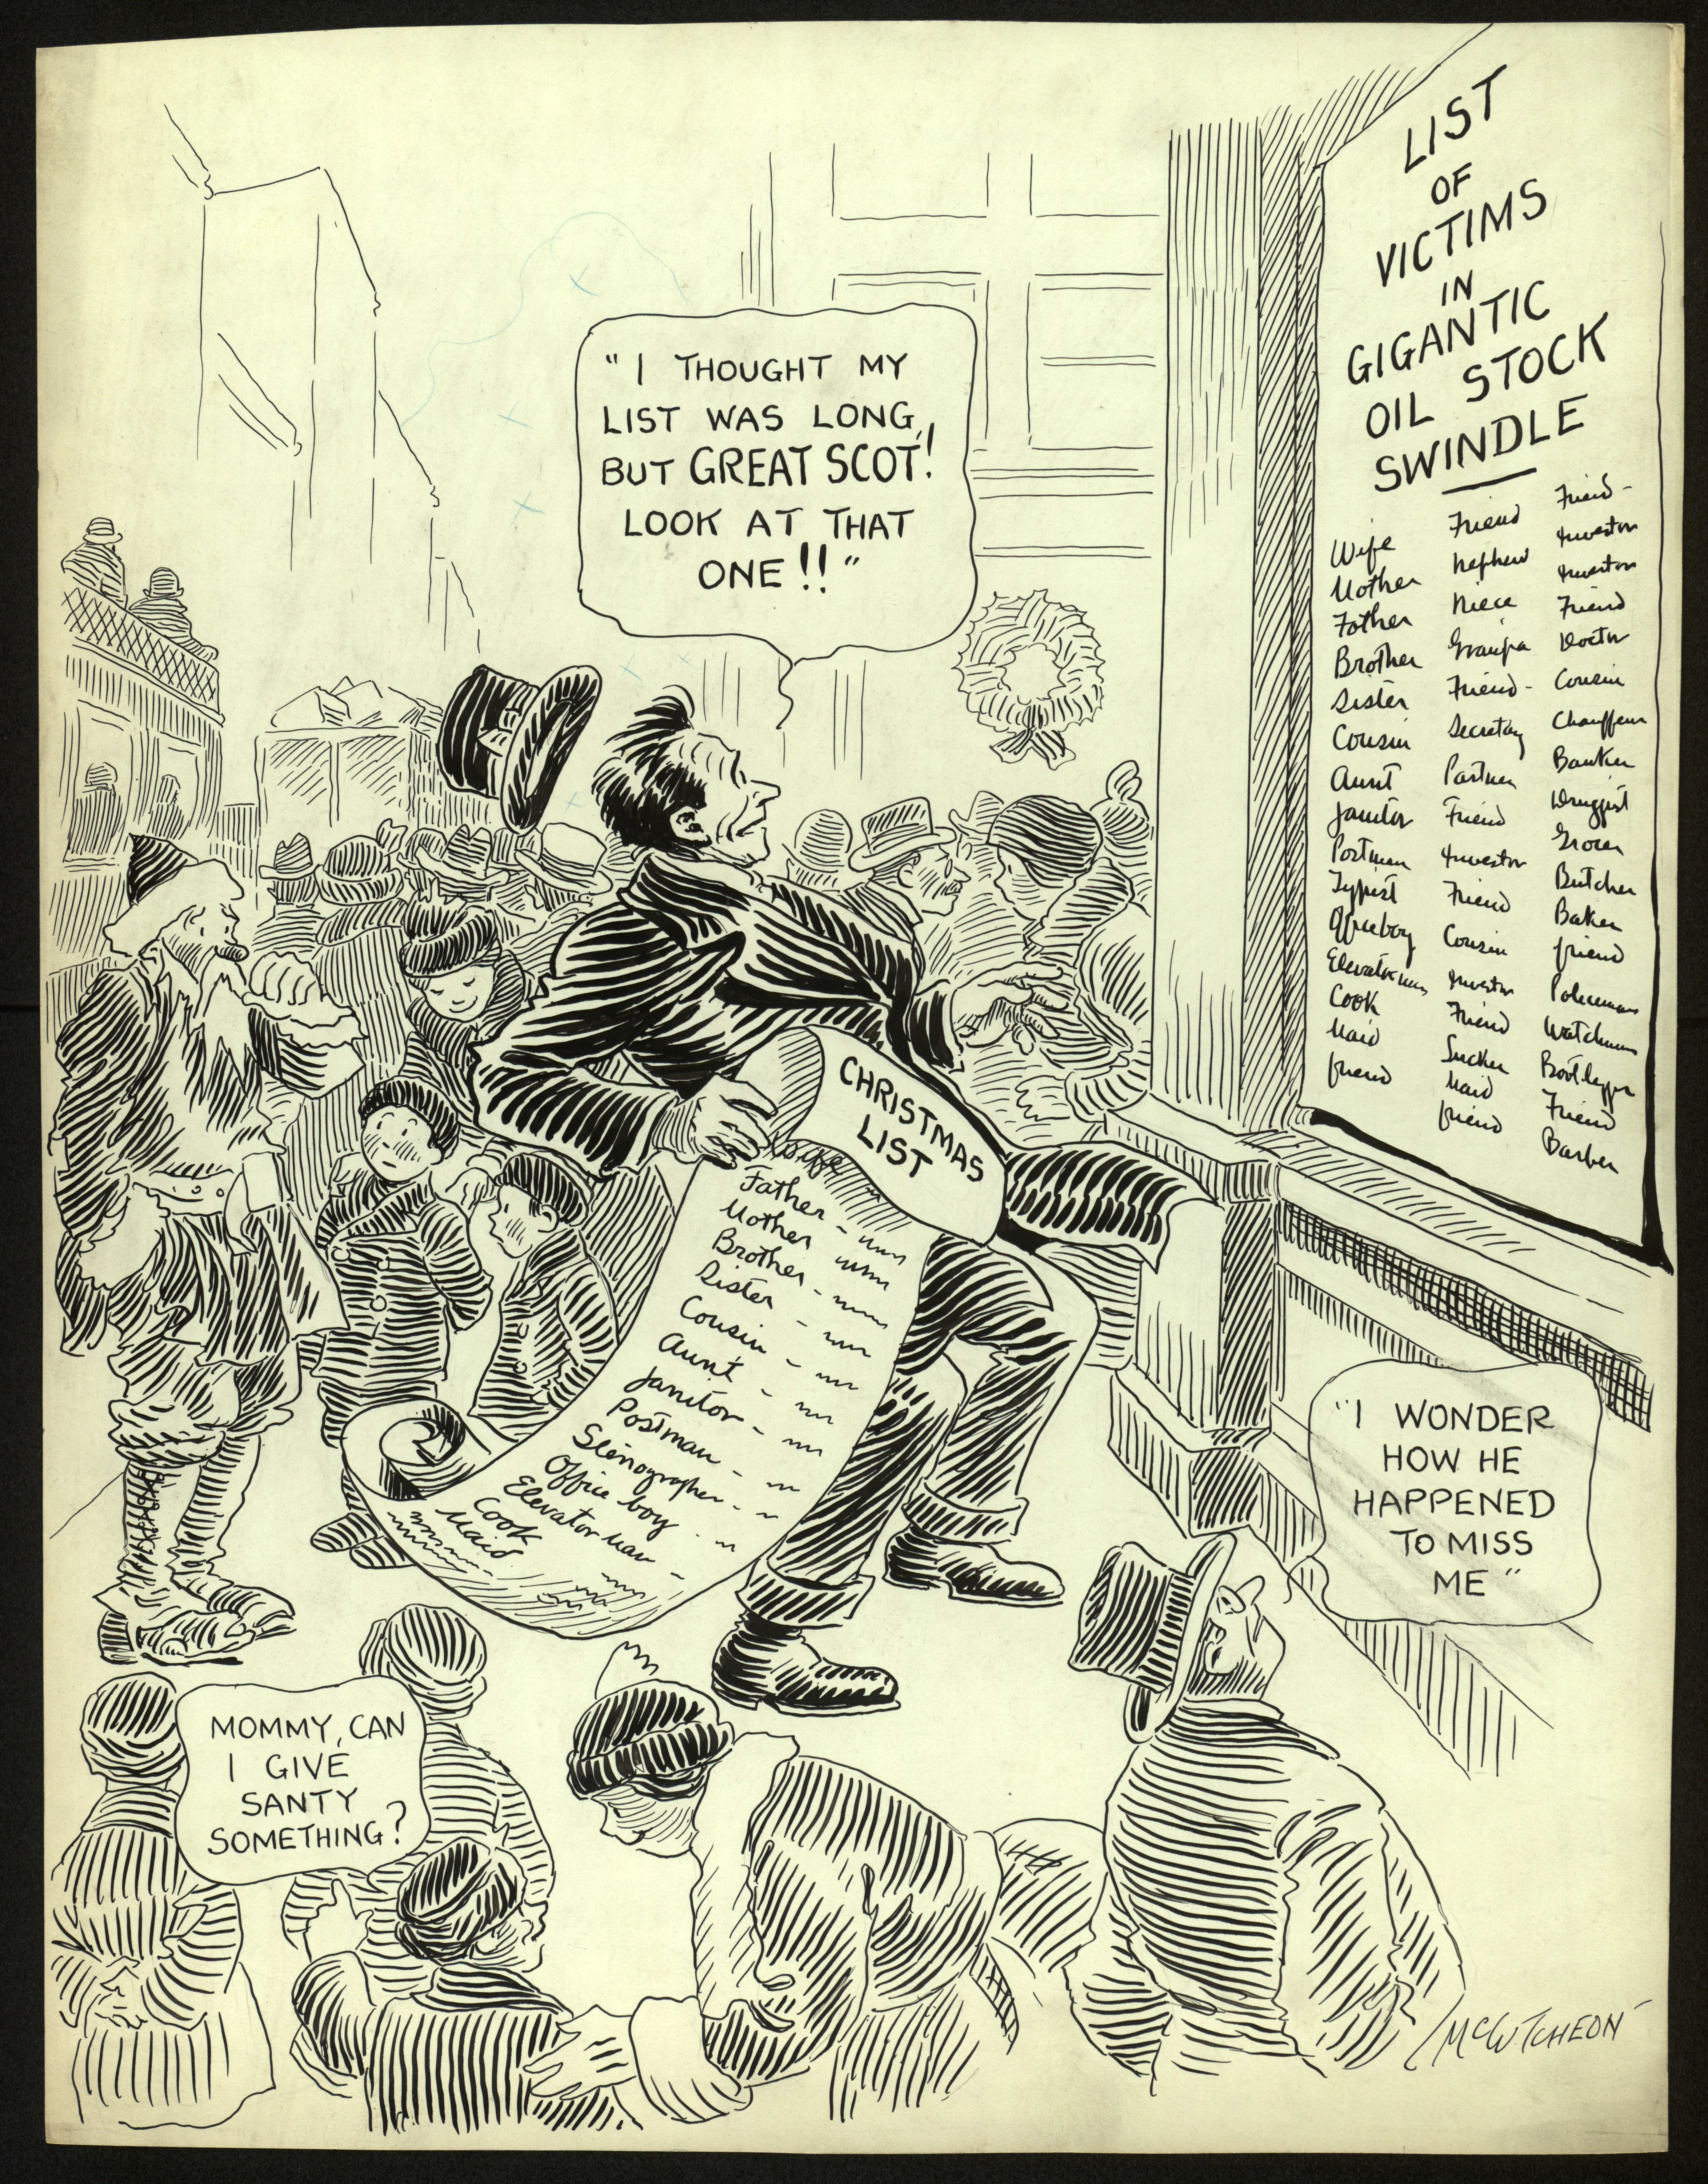 LIST
OF
VICTIMS
IN
GIGANTIC
OIL STOCK
SWINDLE
Wife
Mother
Father
Brother
Sister
Cousin
Aunt
Janitor
Postman
Typist
Officeboy
Elevator man
Cook
Maid
friend
Friend
Nephew
Niece
Grandpa
Friend -
Secretary
Partner
Friend
Investor
Friend
Cousin
Investor
Friend
Sucker
Maid
friend
Friend -
Investor
Investor
Friend
Doctor
Cousin
Chauffeur
Banker
Druggist
Grocer
Butcher
Baker
friend
Policeman
Watchman
Bootlegger
Friend
Barber
"I THOUGHT MY
LIST WAS LONG,
BUT GREAT SCOT!
LOOK AT THAT
ONE!!"
CHRISTMAS
LIST
Wife
Father -
Mother
Brother -
Sister -
Cousin -
Aunt -
Janitor -
Postman -
Stenographer -
Office boy -
Elevator man -
Cook
Maid
"I WONDER
HOW HE
HAPPENED
TO MISS
ME"
MOMMY, CAN
I GIVE
SANTY
SOMETHING?
McCUTCHEON